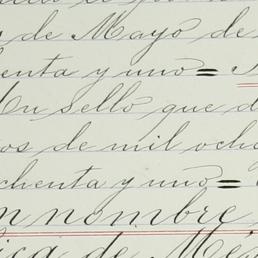 de Mayo de
enta y uno =
Un sello que d
os de mil ocho
chenta y uno =
n nombre
ica de Mé